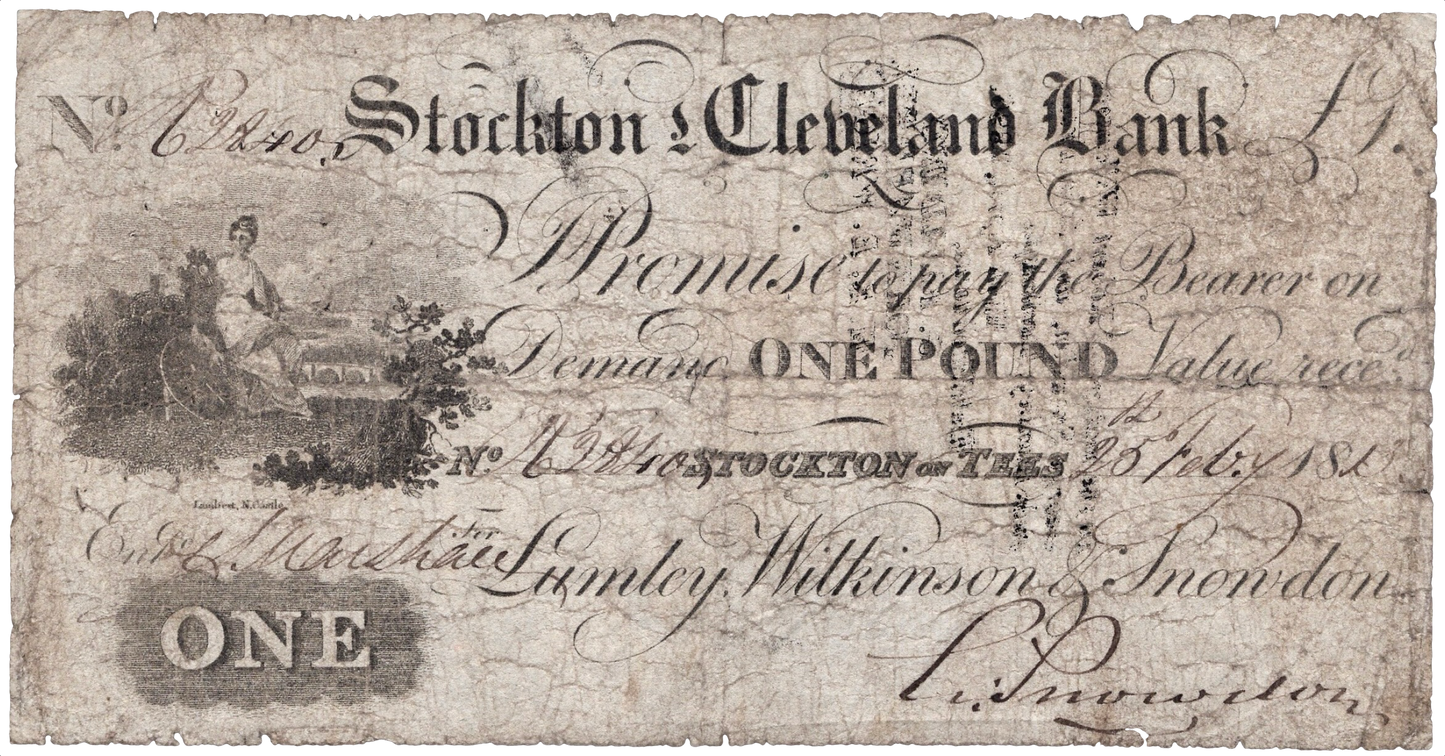 No. A2240 Stockton & Cleveland Bank £1.
I Promise to pay the Bearer on
Demand ONE POUND Value rece.d
No. A2240 STOCKTON ON TEES 25th Feby 181
Lambert, N.Castle.
Entd. L. Marshall For Lumley, Wilkinson & Snowdon.
ONE
Snowdon